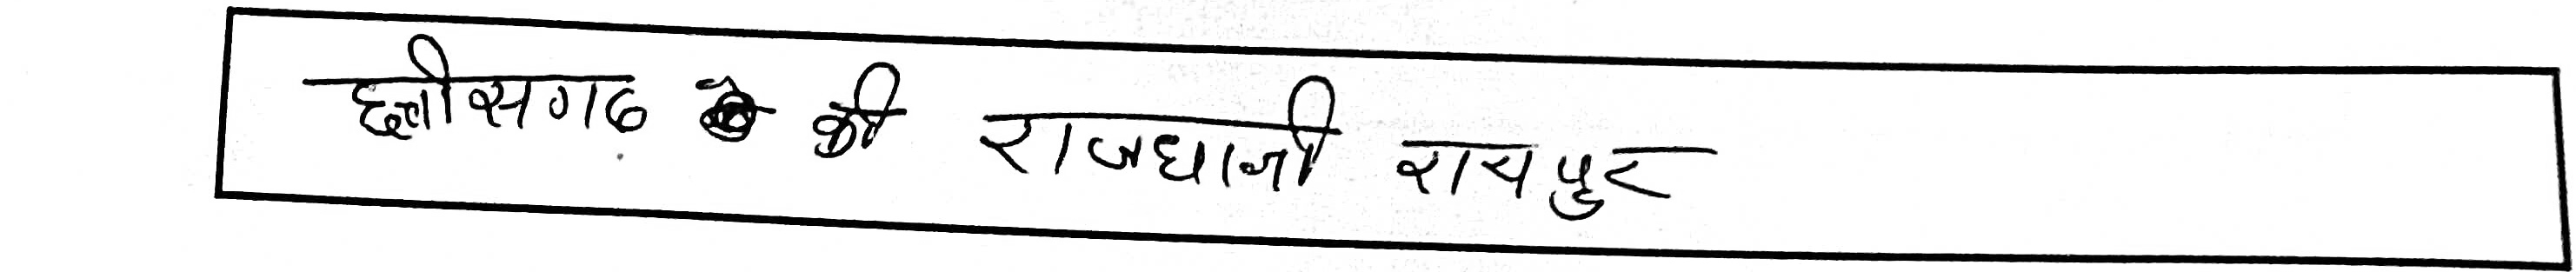 छत्तीसगढ की राजधानी रायपुर